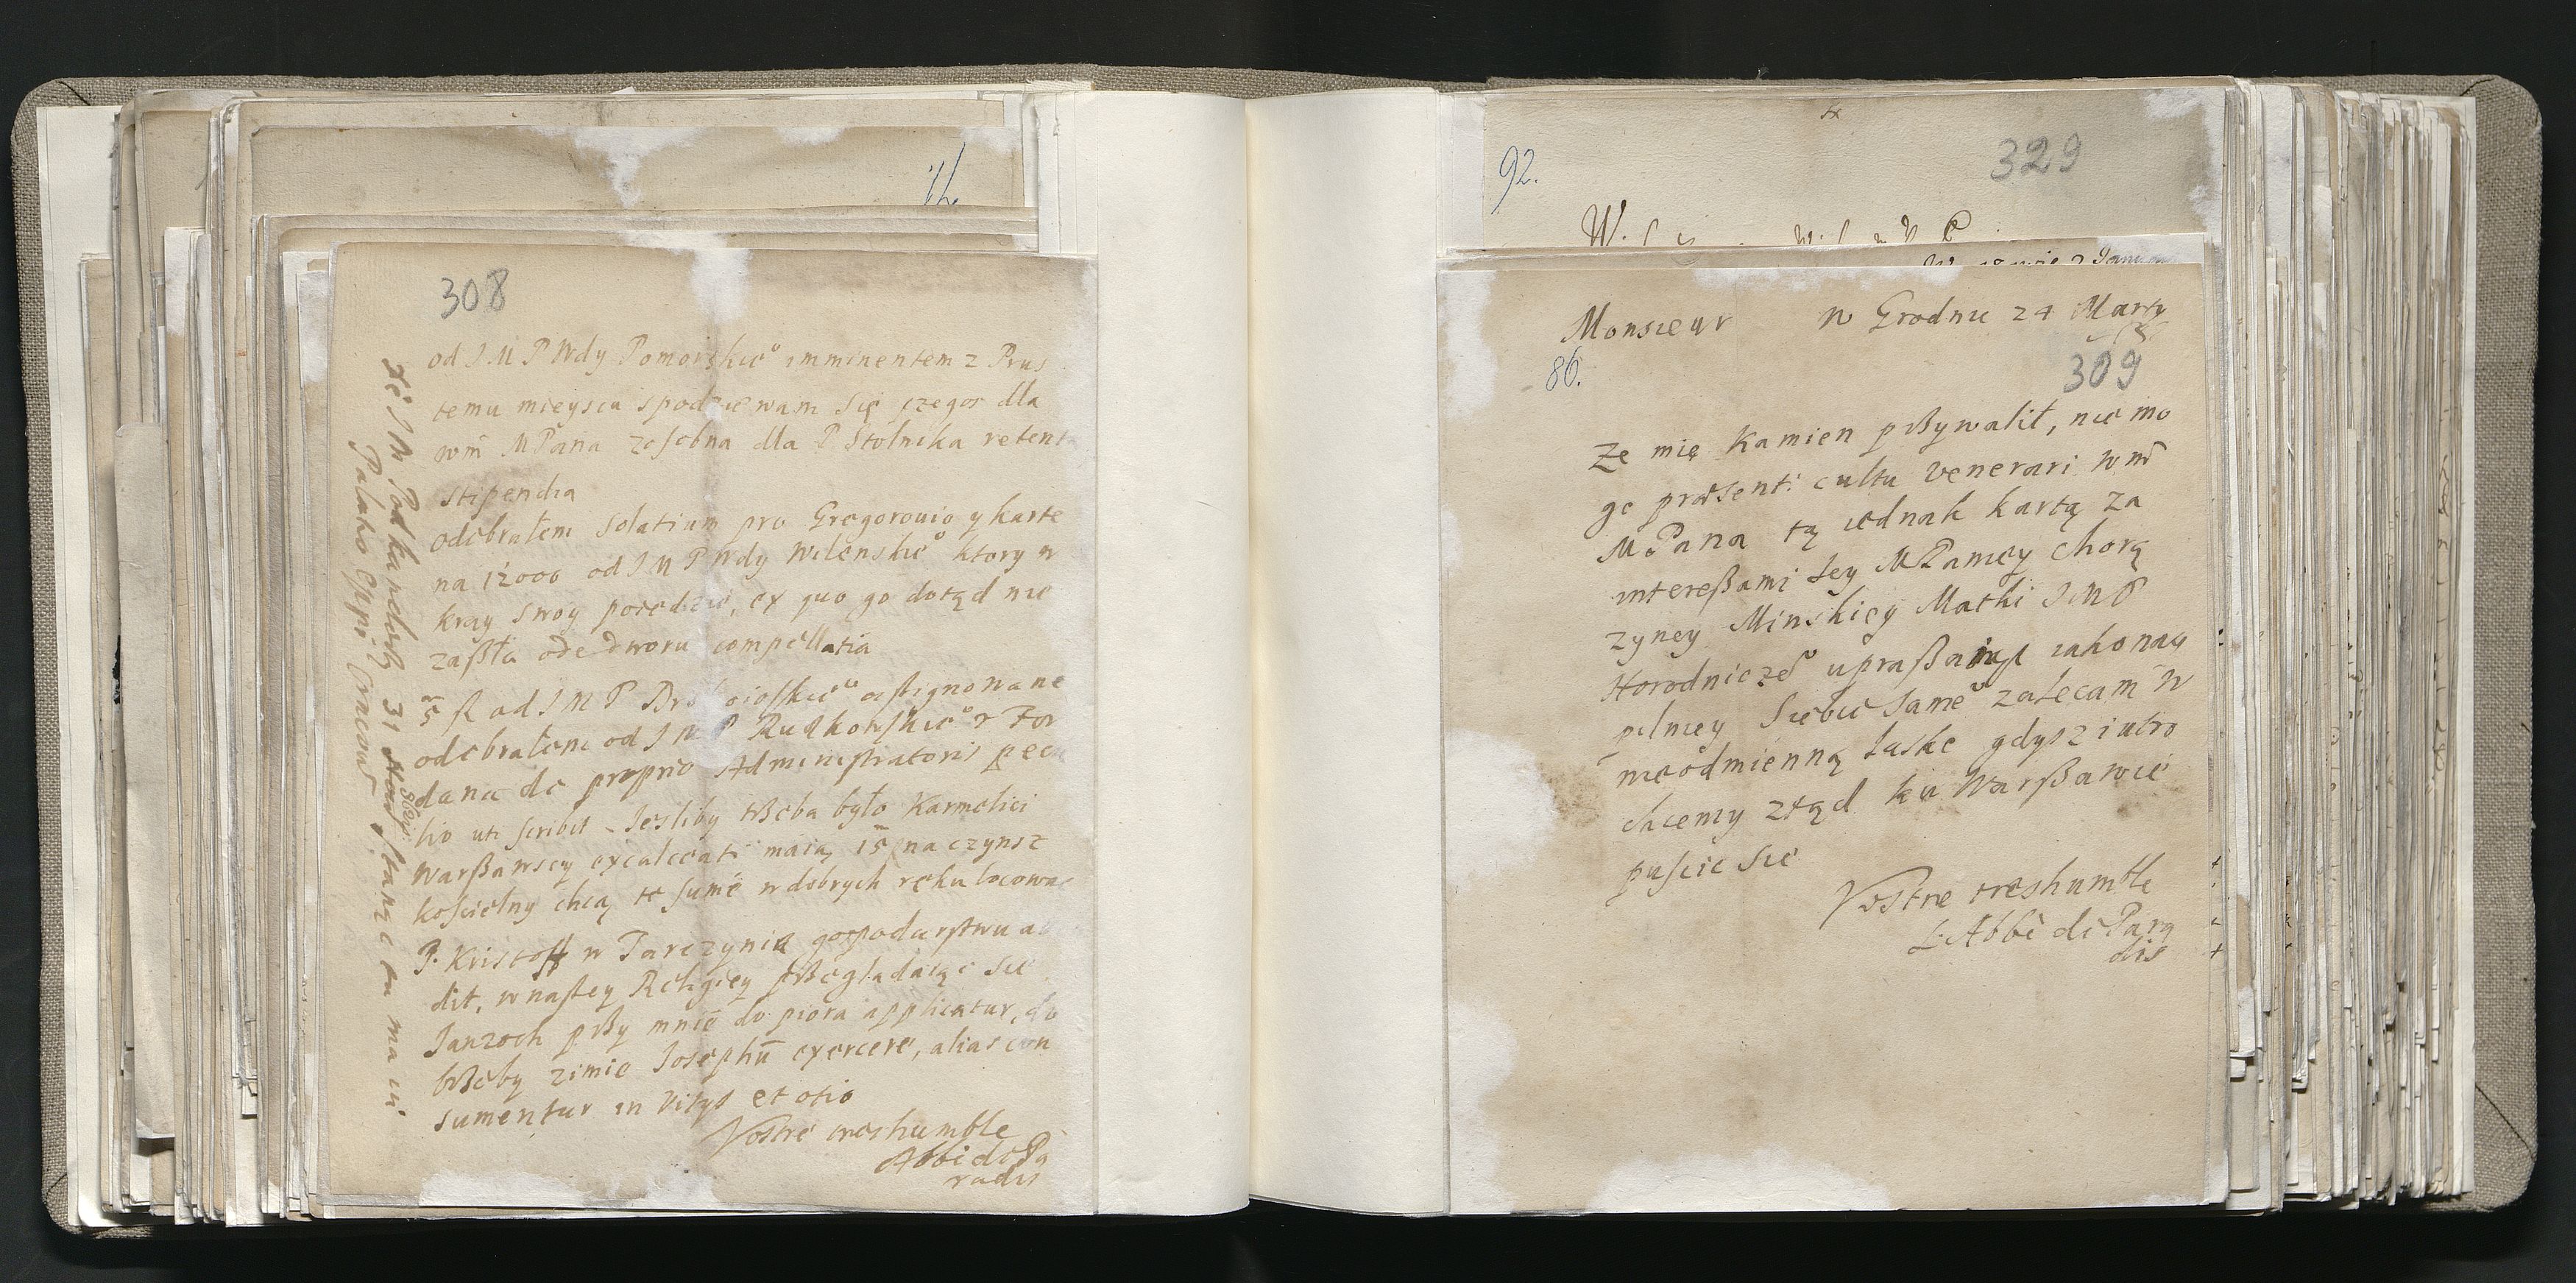 308
od J M P Wdy Pomorskie° imminentem z Prus
temu mieysca spodziewam się czegos dla
wm̃ MPana zosobna dla P Stolnika retent
stipendia
odebrałem solatium pro Gregorouio y karte
na 12000 od J M P Wdy Wilenskie° ktory w
kray swoy poiedzie, ex quo go dotąd nie
zaßła ode dworu compellatia
od J M P aßignowane
odebrałem od J M P Rudkowskie° z For
dana de proprio Administratoris pecu
lio uti scribit Jesliby tßeba było Karmelici
Warßawscy excalceati maią 15 na czynsz
koscielny chcą te sumē w dobrych ręku locowac
P. Kristoff w Tarczynie gospodarstwu
dit, w naßey Religiey pßegladaiąc sie
Janzoch pßy mnie do piora applicatur, do
bßeby zimie Josephū exercere, alias con
sumentur in vitys et otio
Vostre treshumble
Abbé de Pa
radis
że J M Podkanclerzy 31 stanąc tu ma w
Palaho Eppi Cracow
92.
329
Monsieur w Grodnu 24 Marty
86.
309
Ze mię kamien pßywalił, nie mo
ge præsenti cultu venerari wm̃
MPana tą iednak kartą za
intereßami Jey MPaniey Chorą
zyney Minskiey Matki J M P
Horodnicze° upraßaiąc iako nay
pilniey Siebie same° zalecam w
nieodmienną łaske gdysz iutro
chcemy ztąd ku Warßawie
puscic sie
Vostre treshumble
L'Abbé de Para
dis